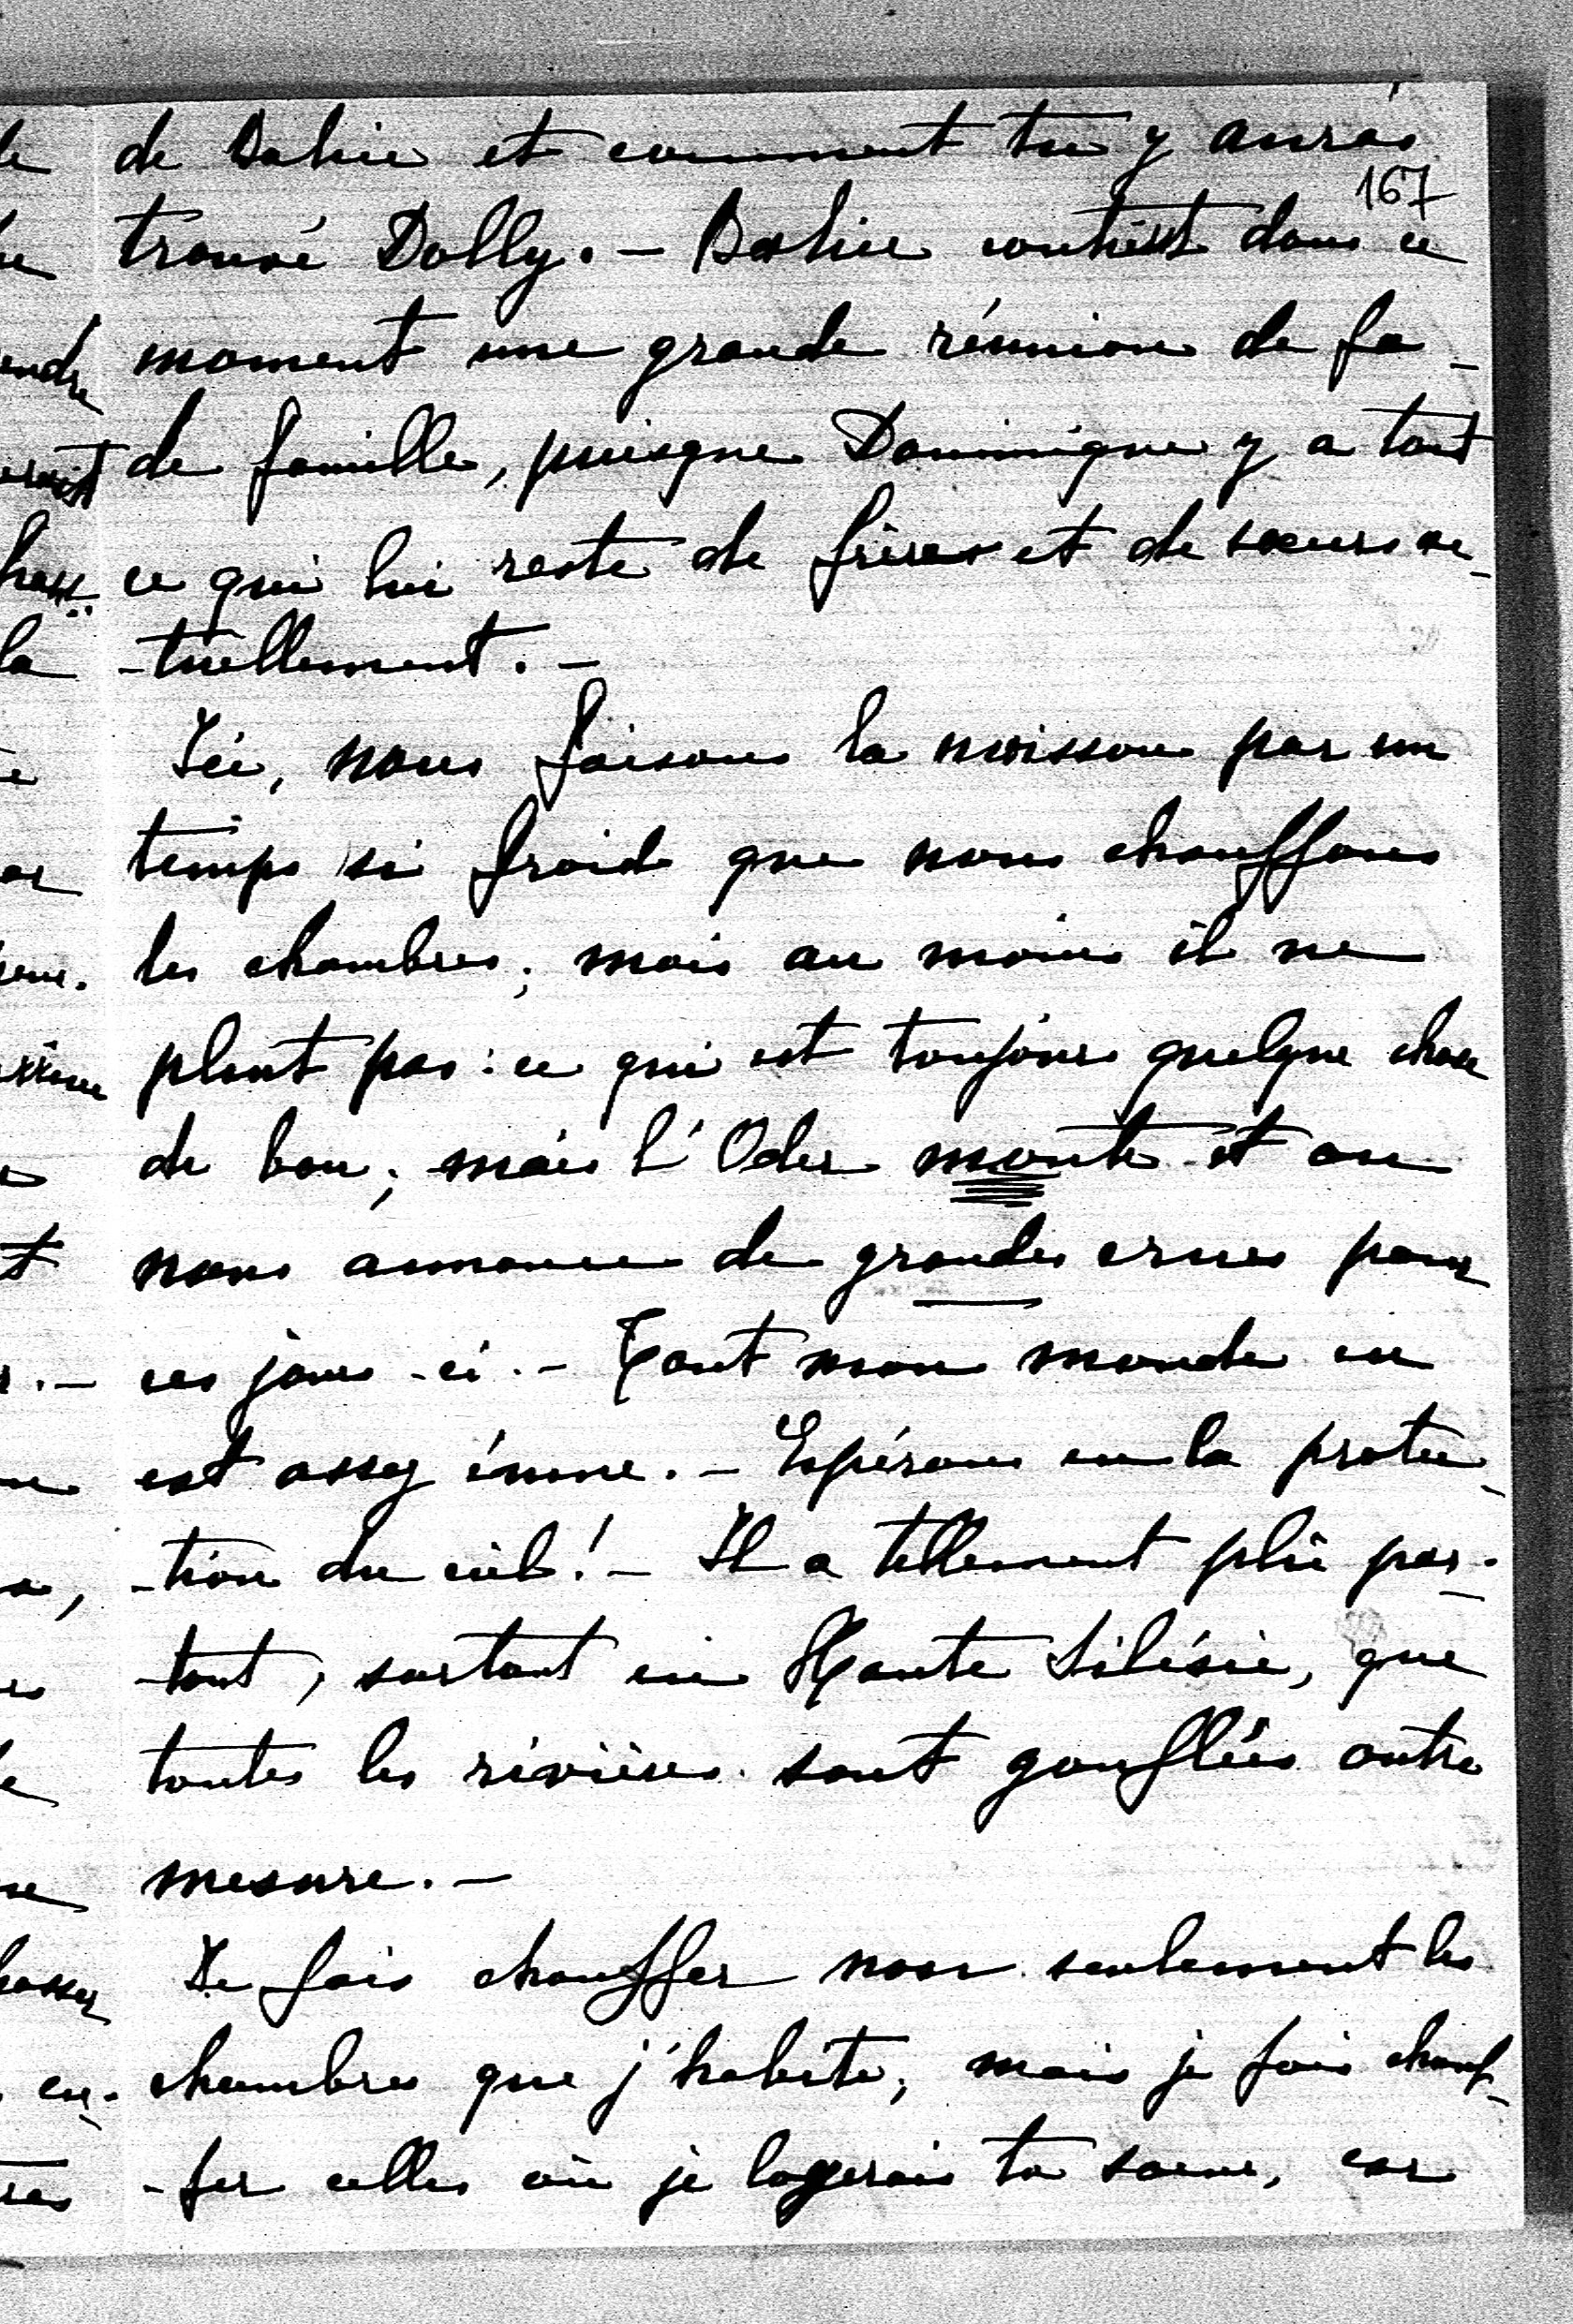 de Bahie et comment tu y auras
167
trouvé Dolly. – Bahie contient dans ce
moment une grande réunion de fa-
de famille, puisque Dominique y a tout
ce qui lui reste de frères et de soeurs ac-
-tuellement. –
Ici, nous faisons la moisson par un
temps si froid que nous chauffons
les chambres; mais au moins il ne
pleut pas: ce qui est toujours quelque chose
de bon; mais l'Oder monte et on
nous annonce de grandes crues pour
ces jours-ci. – Tout mon monde en
est assez émue. – Espérons en la protec-
-tion du ciel! – Il a tellement plu par-
-tout, surtout en Haute Silésie, que
toutes les rivières sont gonflées outre
mesure. –
Je fais chauffer non seulement les
chambres que j'habite, mais je fais chauf-
-fer celles où je logerais ta soeur, car